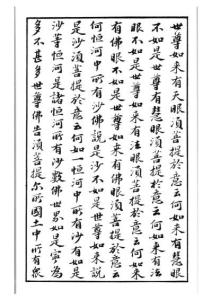 世尊如来有天眼須菩提於意云何如来有慧眼
不如是世尊如来有慧眼須菩提於意云何如来有法
眼不如是世尊如来有法眼須菩提於意云何如来
有佛眼不如是世尊如来有佛眼須菩提於意云
何恒河中所有沙佛說是沙不如是世尊如来說
是沙須菩提於意云何如一恒河中所有沙有如是
沙等恒河是諸恒河所有沙數佛世界如是寧為
多不甚多世尊佛告須菩提尔所國土中所有眾